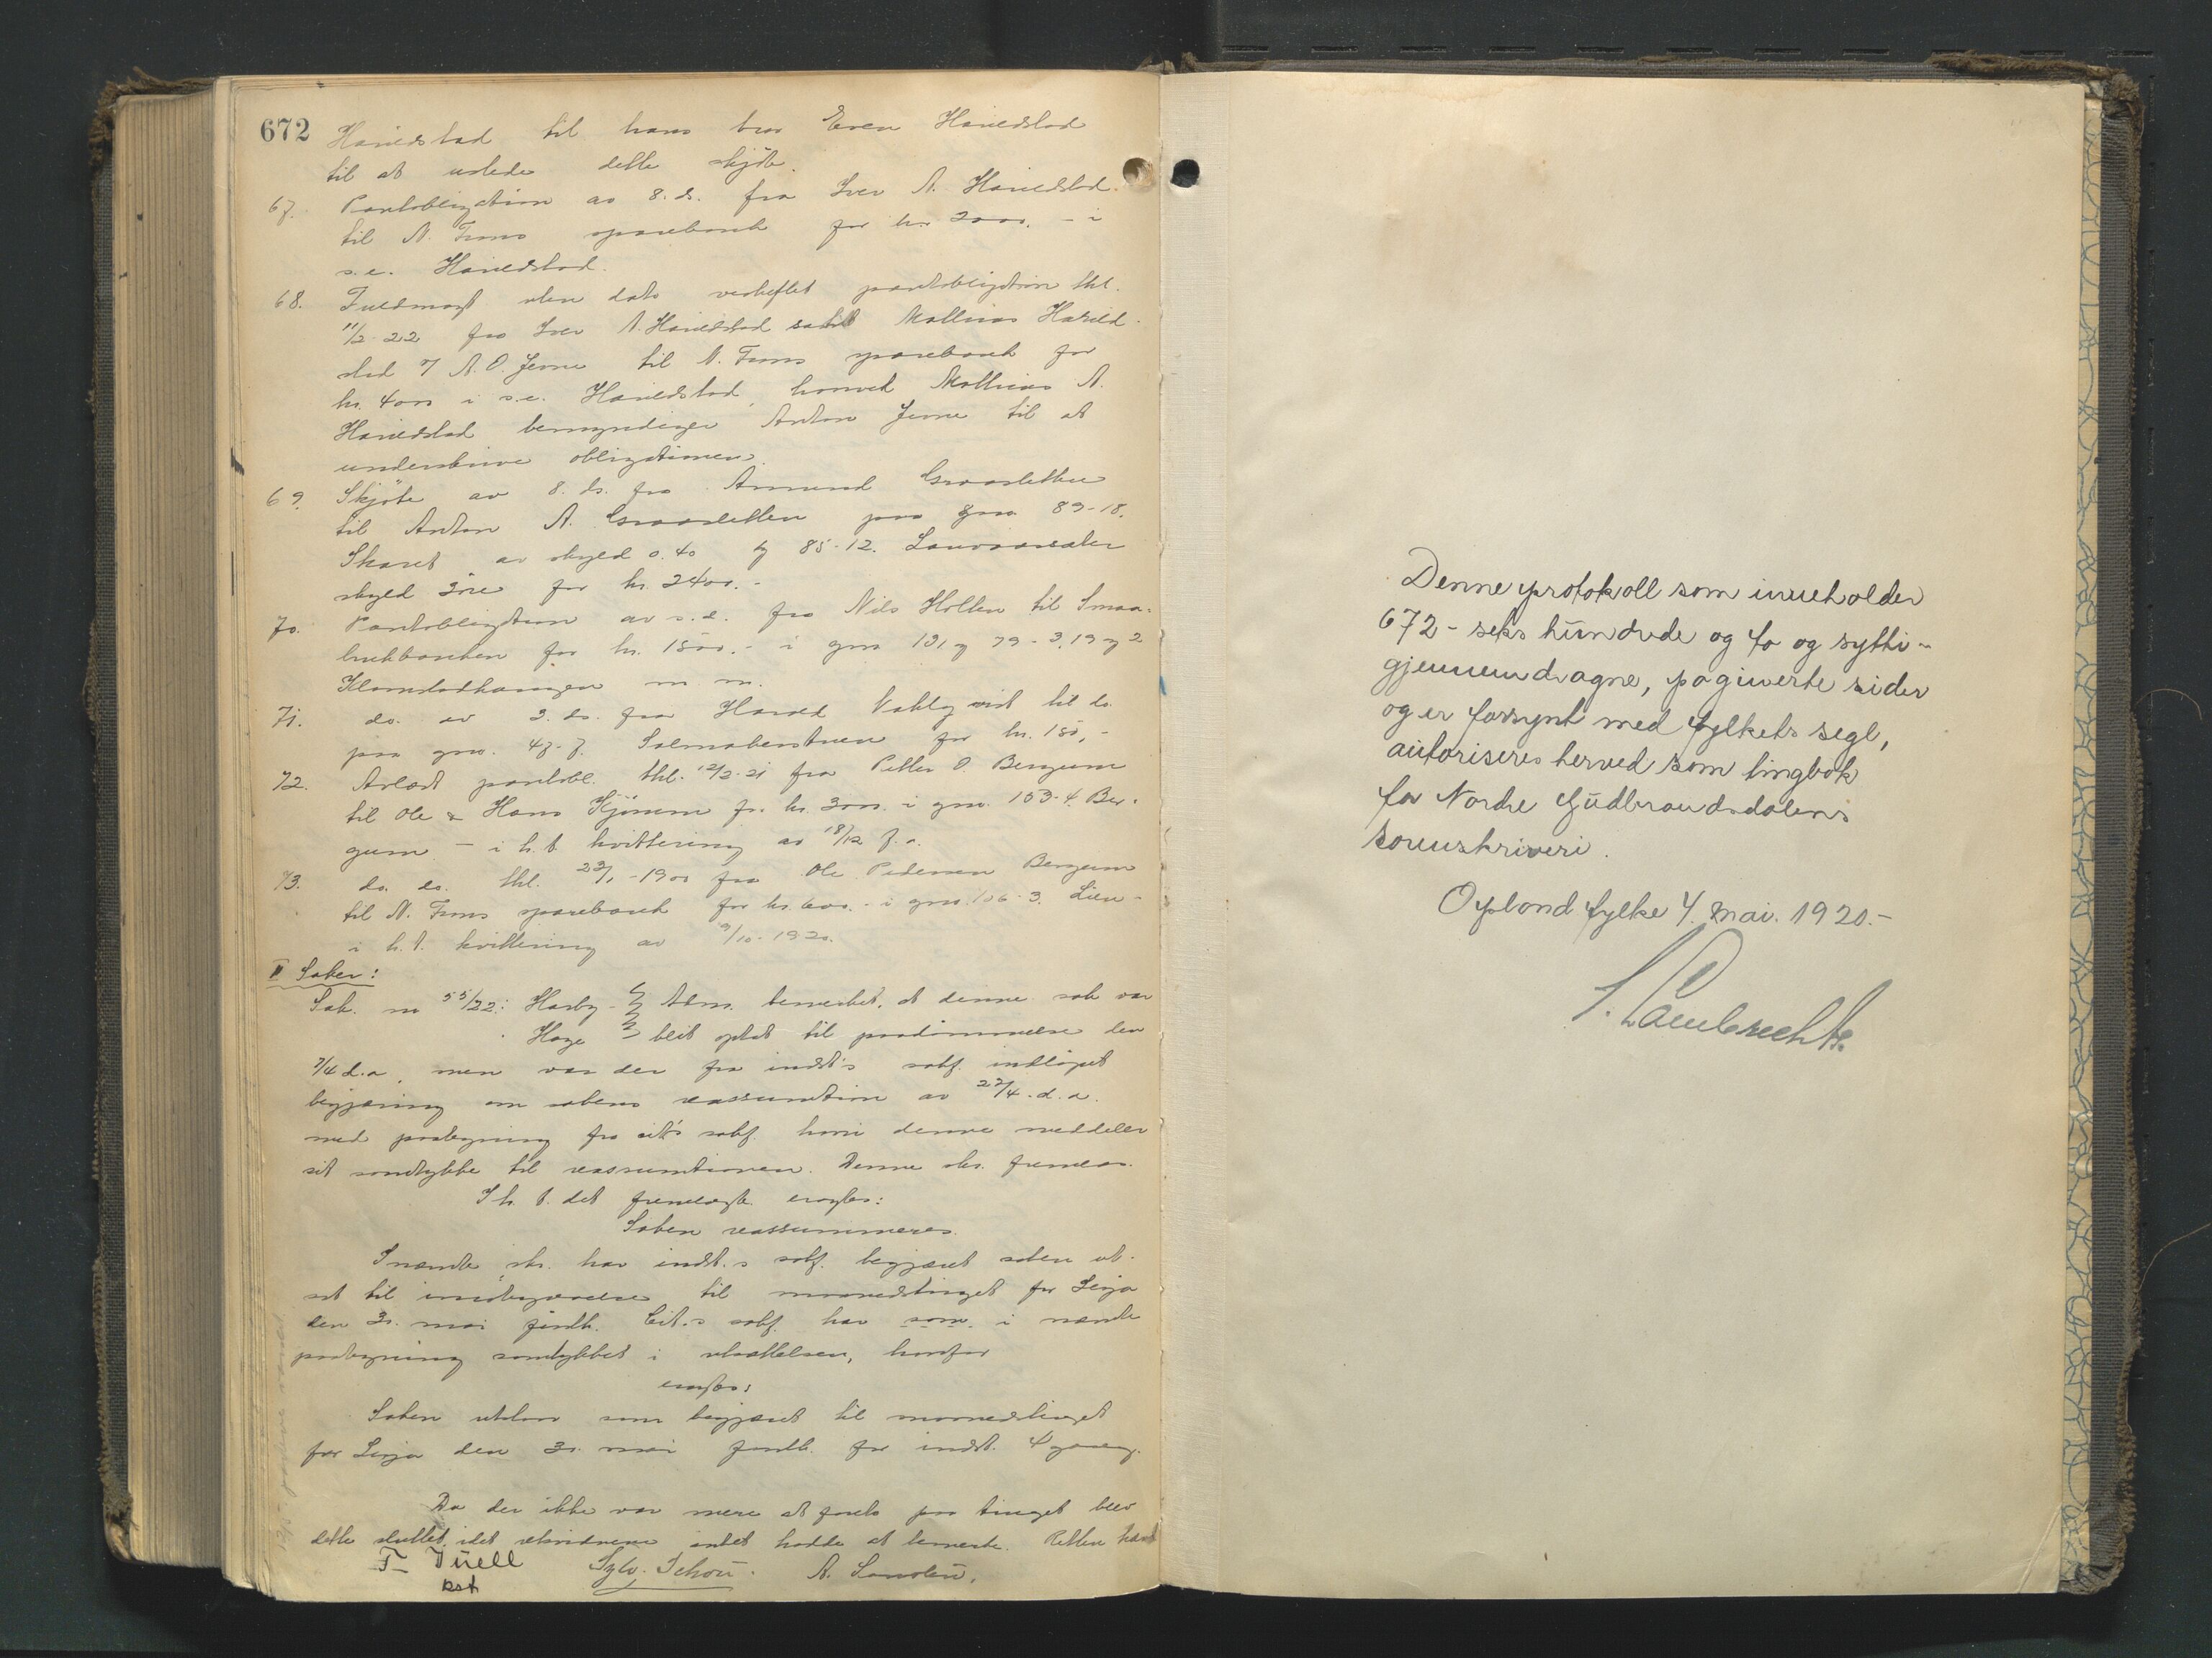 672
Harildstad til hans bror Even Harildstad
til at utstede dette skjøte.
67. Pantobligation av 8. ds. fra Iver A. Harildstad
til N. Frons sparebank for kr. 2000.- i
s.e. Harildstad.
68. Fuldmagt uten dato vedheftet pantobligation thl.
11/2-22 fra Iver A. Harildstad samt Mathias Harild-
stad og A. O. til N. Frons sparebank for
kr. 4000 i s.e. Harildstad, hvorved Mathias A.
Harildstad bemyndiger Anton til at
underskrive obligationen.
69. Skjøte av 8. ds. fra Amund Graasletten
til Anton A. Graasletten paa gno. 89-18.
Skaret av skyld 0.40 og 85-12.
skyld 3 øre for kr. 2400.-
70. Pantobligation av s.d. fra Nils Holten til Smaa-
brukbanken for kr. 1500.- i gno 131 og 79-3, 19 og 2
m m.
71. do. av 3. ds. fra Harald til do.
paa gno. 47-7. for kr. 150,-
72. Avlæst pantobl. thl. 12/2-21 fra Petter O. Bergum
til Ole & Hans Kjörum for kr. 3000. i gno. 153-4. Ber-
gum - i h.t. kvittering av 18/12 f. a.
73. do. do. thl. 23/1-1900 fra Ole Pedersen Bergum
til N. Frons sparebank for kr. 600.- i gno. 156-3. Lien-
i h.t. kvittering av 9/10-1920.
II Saker:
Sak. no 55/22: Harby- Adm. bemerket, at denne sak var
Hage blit optat til paadømmelse den
7/4 d.a, men var der fra indst's sakf. indløpet
begjæring om sakens reassumtion av 22/4. d.a.
med paategning fra cit's sakf. hvori denne meddeler
sit samtykke til reassumtionen. Denne skr. fremlas.
I h. t. det fremlagte eragtes:
Saken reassummeres.
I nævnte skr. har indst.s sakf. begjæret saken ut-
sat til til maanedstinget for Lesja
den 31. mai førstk. Cit.s sakf. har som i nævnte
paategning samtykket i utsættelsen, hvorfor
eragtes:
Saken utstaar som begjæret til maanedstinget
for Lesja den 31. mai førstk. for indst. 4 gang.
Da der ikke var mere at foreta paa tinget blev
dette sluttet, idet vidnerne intet hadde at bemerke. Retten hævet
F. Düell Sylv. Schou. A. Sandbu.
kst
Denne protokoll som inneholder
672 - seks hundrede og to og sytti -
gjennemdragne, paginerte sider
og er forsynt med fylkets segl,
autoriseres herved som tingbok
for Nordre Gudbrandsdalens
sorenskriveri.
Opland fylke 4. mai. 1920.-
S. Lambrechts.